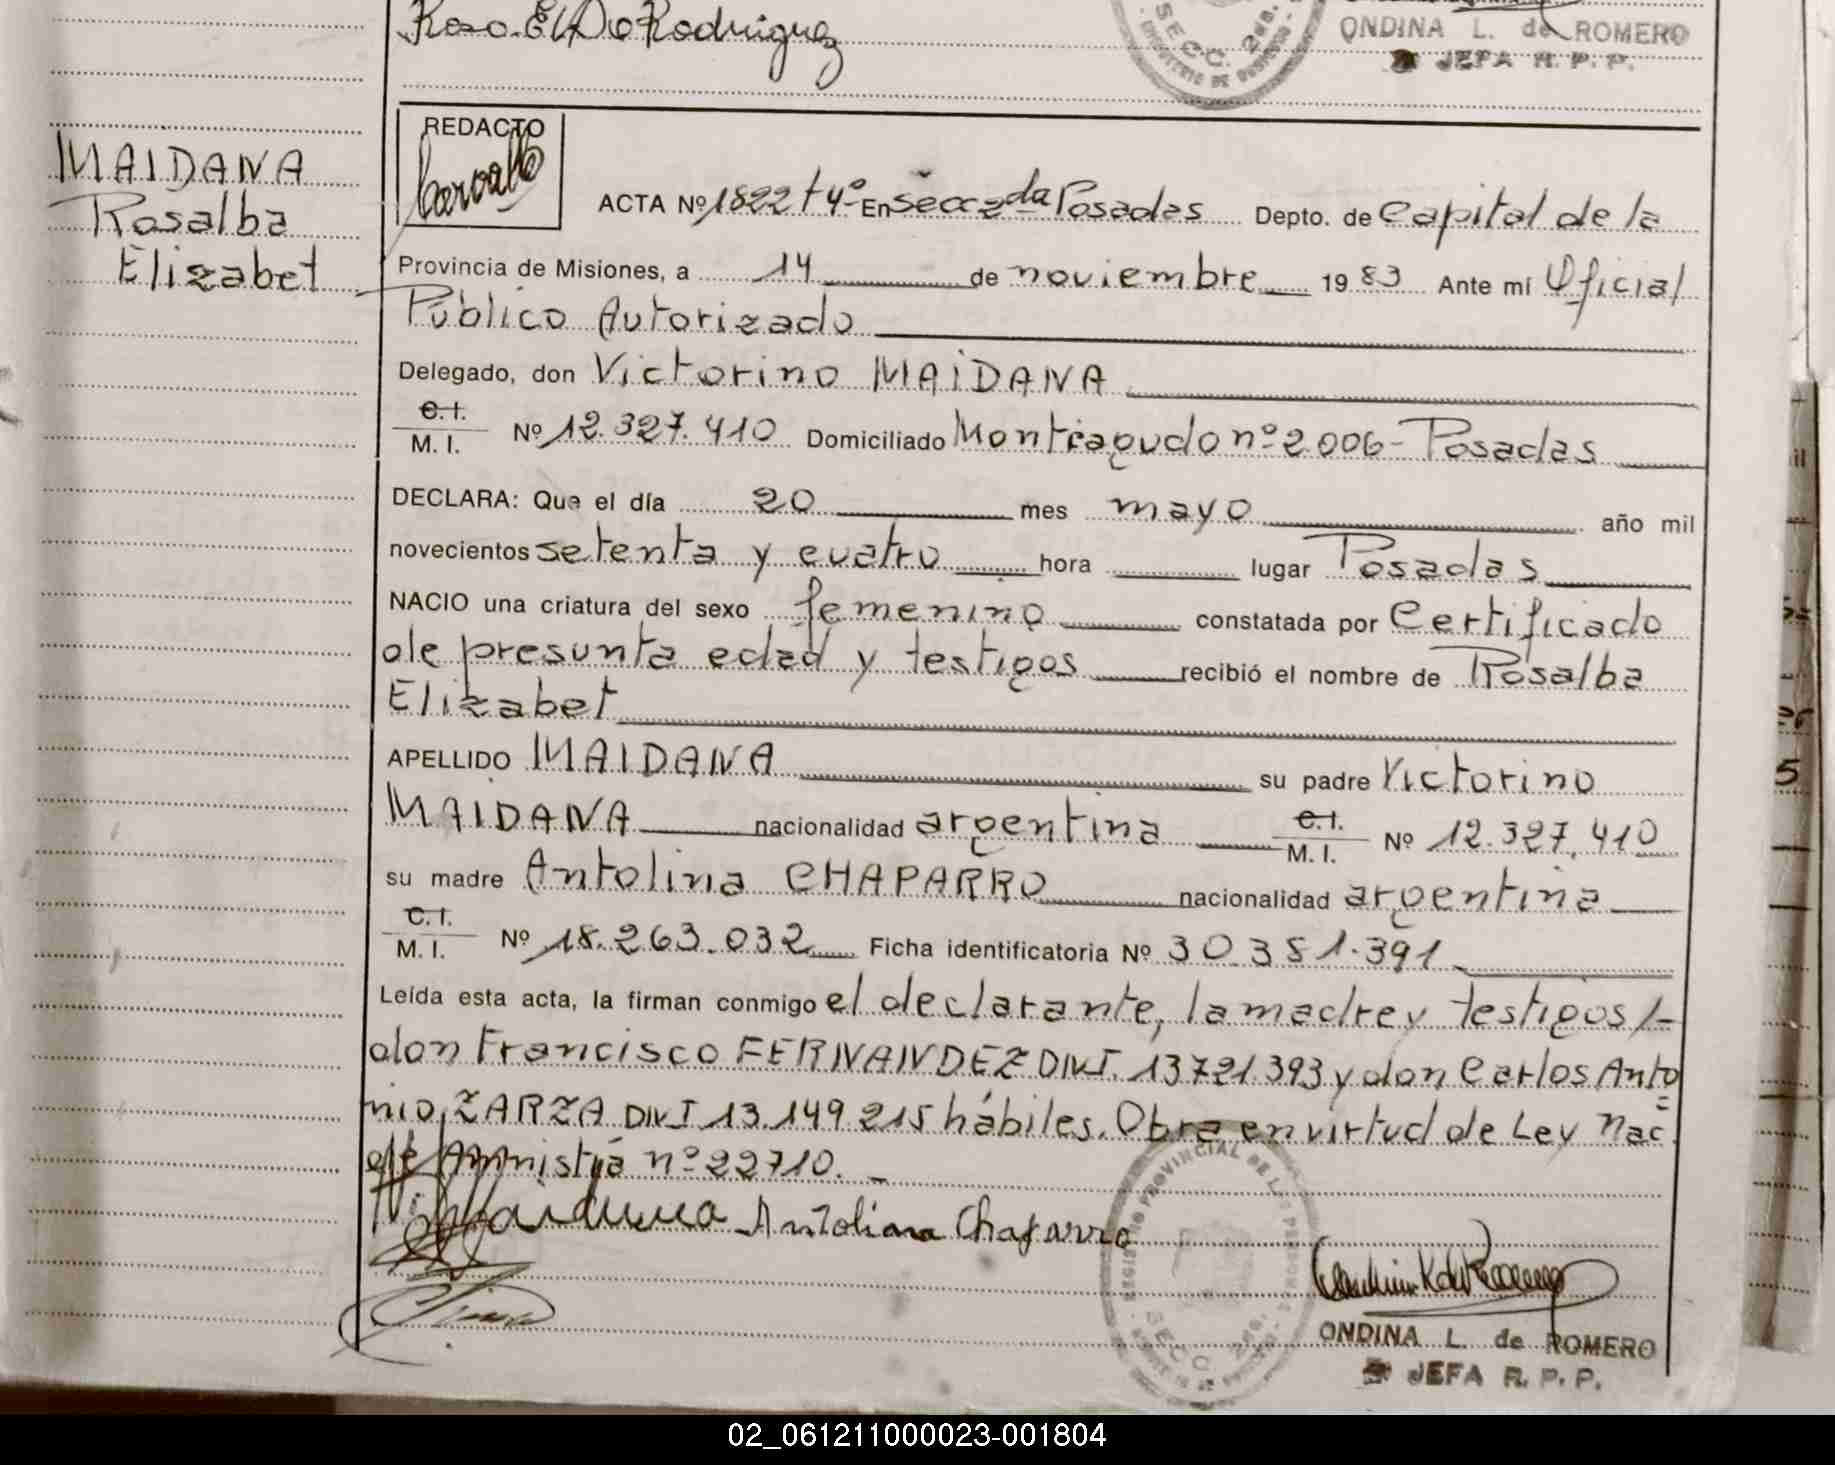 Rodriguez
ONDINA L. de ROMERO
JEFA R. P. P.
MAIDANA
Rosalba
Elizabet
REDACTO
ACTA Nº 1822 tº 4º En Secc 2da Posadas Depto. de Capital de la
Provincia de Misiones, a 14 de noviembre 1983 Ante mí Oficial
Público Autorizado
Delegado, don Victorino MAIDANA
C. I.
M. I. Nº 12.327.410 Domiciliado Monteagudo nº 2006 - Posadas
DECLARA: Que el día 20 mes mayo año mil
novecientos setenta y cuatro hora lugar Posadas
NACIO una criatura del sexo femenino constatada por Certificado
de presunta edad y testigos recibió el nombre de Rosalba
Elizabet
APELLIDO MAIDANA su padre Victorino
MAIDANA nacionalidad argentina C. I. M. I. Nº 12.327.410
su madre Antolina CHAPARRO nacionalidad argentina
C. I.
M. I. Nº 18.263.032 Ficha identificatoria Nº 30.381.391
Leída esta acta, la firman conmigo el declarante, la madre y testigos /-
don Francisco FERNANDEZ DNI. 13721.393 y don Carlos Anto
nio ZARZA DNI 13.149.215 hábiles. Obra en virtud de Ley Nac.
de Amnistia nº 22710. -
Maidana Antolina Chaparro
REGISTRO PROVINCIAL DE LAS PERSONAS
SECC. 2da.
ONDINA L. de ROMERO
JEFA R. P. P.
02_061211000023-001804